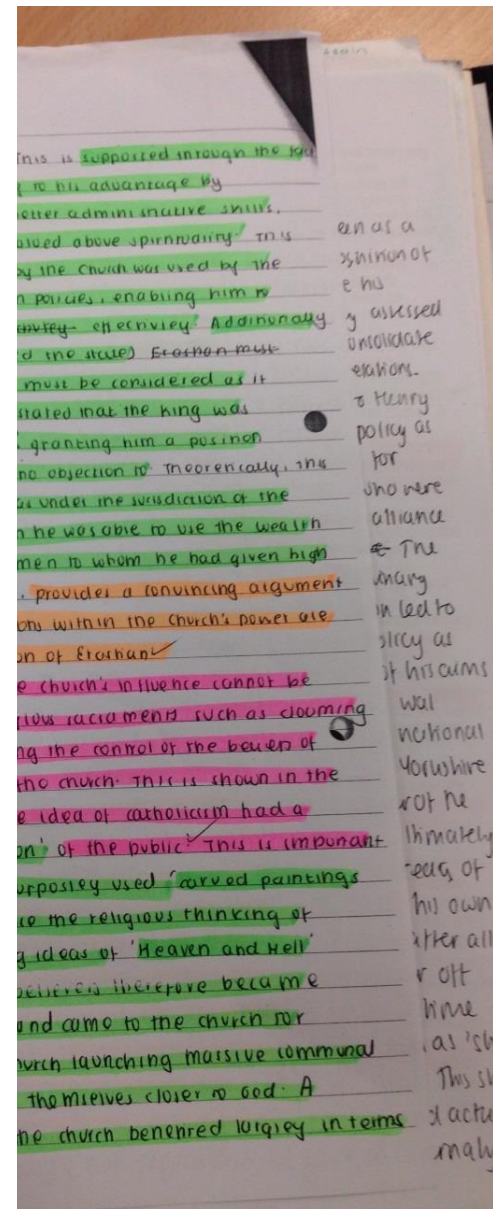 This is supported through the
to his advantage by
better administrative skills.
valued above spirituality. This
by the Church was used by the
n policies, enabling him to
effectivley. Additionally
d the state) Erastian must
must be considered as it
stated that the King was
granting him a position
no objection to. Theoretically, this
as under the jurisdiction of the
n he was able to use the wealth
men to whom he had given high
provides a convincing argument
ons within the Church's power are
on of Erastian
e church's influence cannot be
rious sacraments such as
ng the control of the of
the church. This is shown in the
e idea of catholicism had a
on' of the public. This is important
urposley used 'carved paintings
ce the religious thinking of
g ideas of 'Heaven and Hell'
believers therefore became
and came to the church for
hurch launching massive communal
themselves closer to God. A
he church benefited largley in terms
een as a
e his
y assessed
onsolidate
elations.
to Henry
policy as
for
who were
alliance
The
in led to
olicy as
of his aims
national
Yorkshire
ltimately
his own
after all
r off
time
as 'sh
This sh
actu